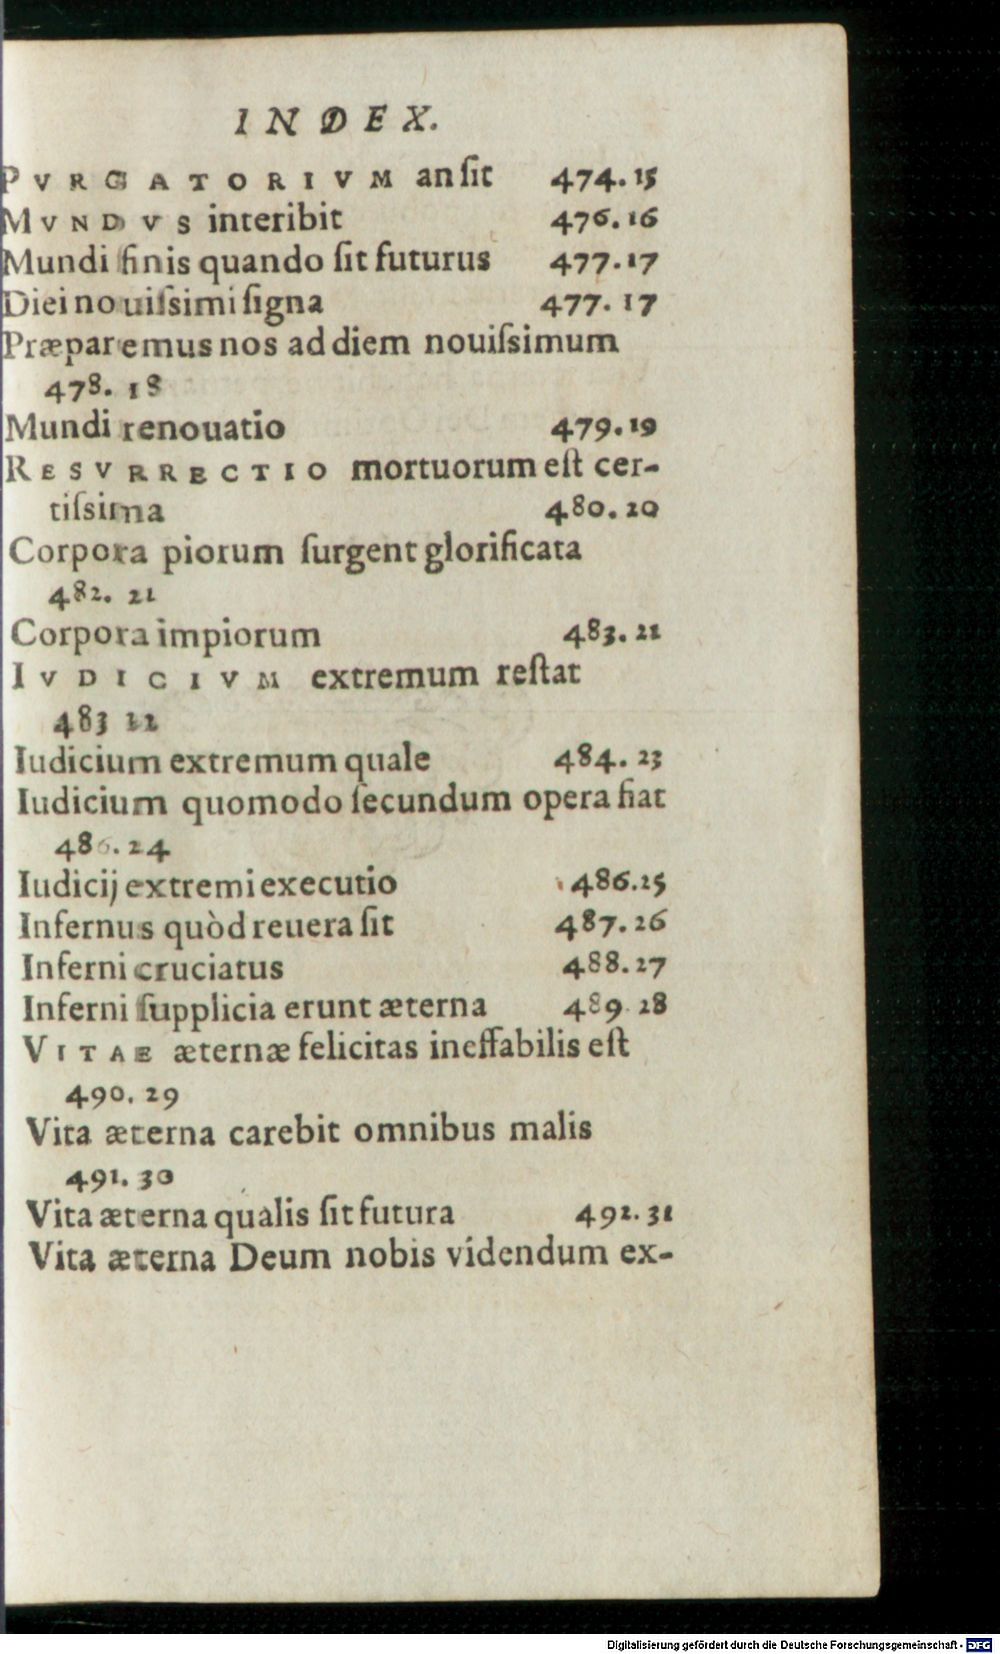 INDEX.
PVRGATORIVM an ſit 474.15
MVNDVS interibit 476.16
Mundi finis quando ſit futurus 477.17
Diei nouiſsimi ſigna 477.17
Præparemus nos ad diem nouiſsimum
478.18
Mundi renouatio 479.19
RESVRRECTIO mortuorum eſt cer-
tiſsima 480.20
Corpora piorum ſurgent glorificata
482.21
Corpora impiorum 483.21
IVDICIVM extremum reſtat
483 22
Iudicium extremum quale 484.23
Iudicium quomodo ſecundum opera fiat
486.24
Iudicij extremi executio 486.25
Infernus quòd reuera ſit 487.26
Inferni cruciatus 488.27
Inferni ſupplicia erunt æterna 489.28
VITAE æternæ felicitas ineffabilis eſt
490.29
Vita æterna carebit omnibus malis
491.30
Vita æterna qualis ſit futura 492.31
Vita æterna Deum nobis videndum ex-
Digitalisierung gefördert durch die Deutsche Forschungsgemeinschaft - DFG